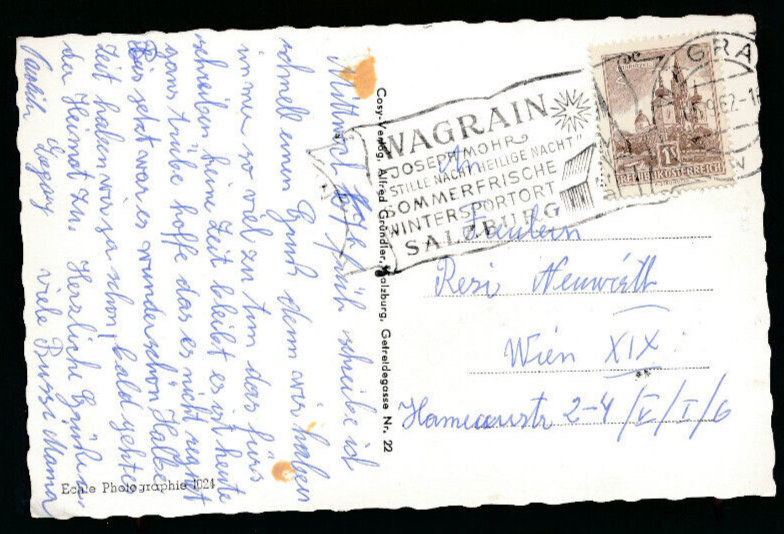 Mittwoch früh schreibe ich
schnell einen Gruß denn wir haben
immer so viel zu tun das fürs
schreiben keine Zeit bleibt es ist heute
ganz trübe hoffe das es nicht regnet
Bis jetzt war es wunderschön Halbe
Zeit haben wir ja schon, bald geht's
der Heimat zu. Herzliche Grüße
viele Bussi Mama
Echte Photographie 1024
Cosy-Verlag, Alfred Gründler, Salzburg, Getreidegasse Nr. 22
WAGRAIN
JOSEPH MOHR
"STILLE NACHT HEILIGE NACHT"
SOMMERFRISCHE
WINTERSPORTORT
SALZBURG
GRA
9.62-1
REPUBLIK ÖSTERREICH
An
Fräulein
Resi Neuwirth
Wien XIX
2-4/V/I/6